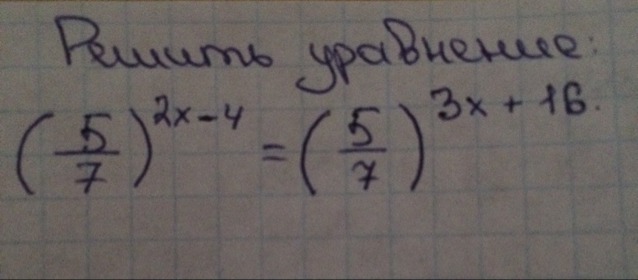 Решить уравнение:
(5/7)^{2x-4} = (5/7)^{3x+16}.